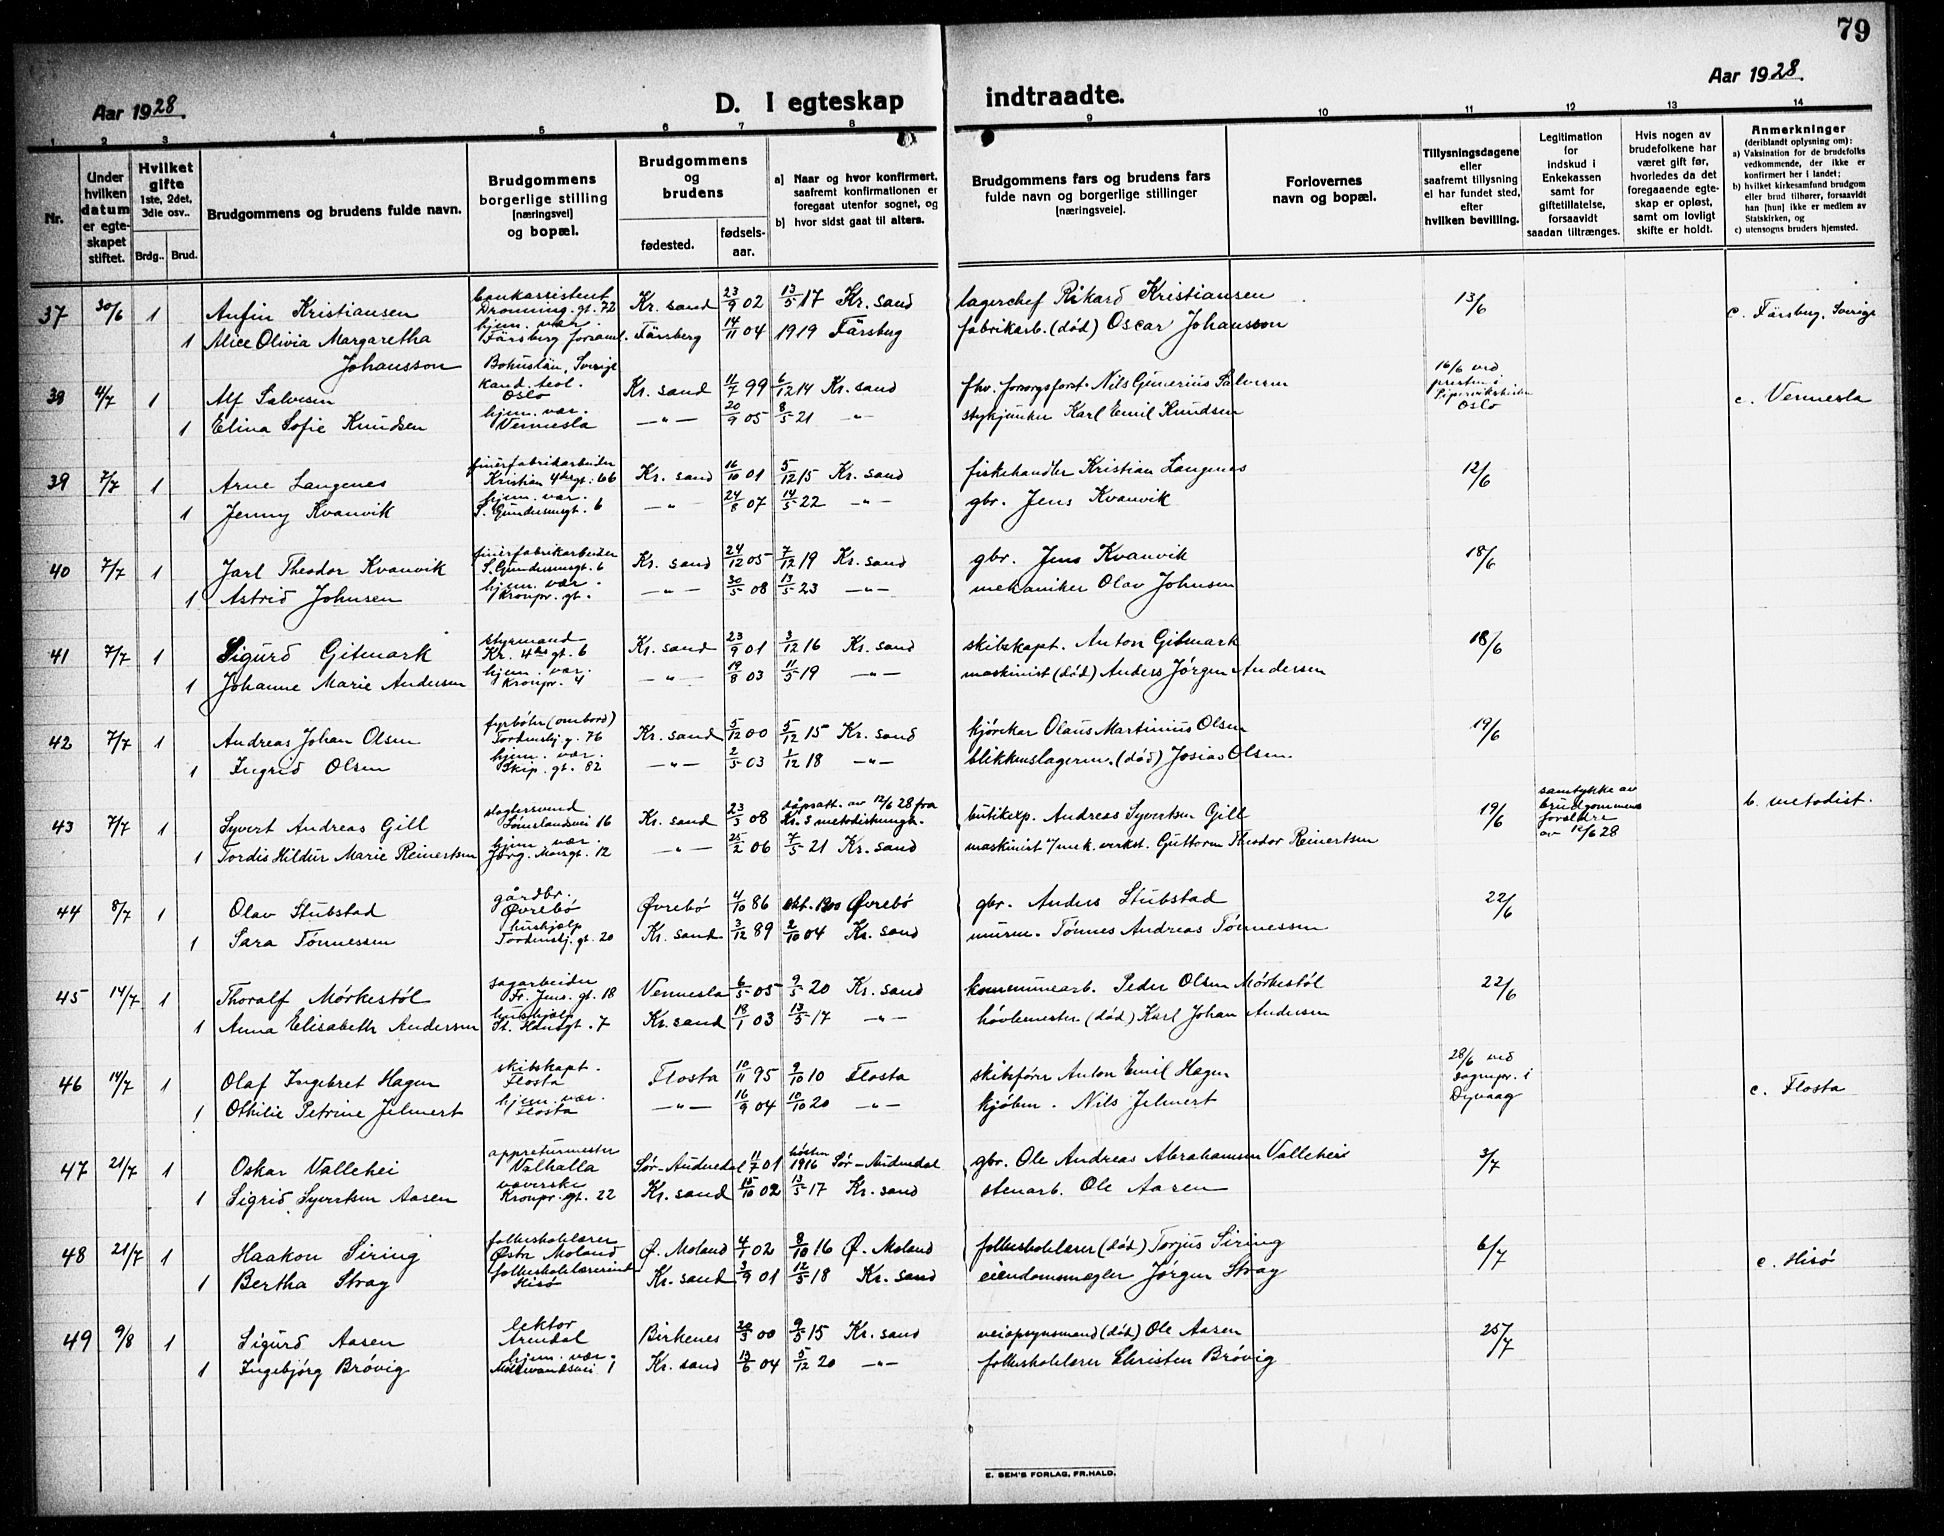 79
Aar 1928.
D. I egteskap
indtraadte.
Aar 1928.
1 2 3 4 5 6 7 8 9 10 11 12 13 14
Nr.
Under hvilken datum er egteskapet stiftet.
Hvilket gifte 1ste, 2det, 3die osv..
Brdg.. Brud.
Brudgommens og brudens fulde navn.
Brudgommens borgerlige stilling [næringsvei] og bopæl.
Brudgommens og brudens
fødested.
fødselsaar.
a] Naar og hvor konfirmert, saafremt konfirmationen er foregaat utenfor sognet, og
b] hvor sidst gaat til alters.
Brudgommens fars og brudens fars fulde navn og borgerlige stillinger [næringsveie].
Forlovernes navn og bopæl.
Tillysningsdagene eller saafremt tillysning ei har fundet sted, efter hvilken bevilling.
Legitimation for indskud i Enkekassen samt for giftetillatelse, forsaavidt saadan tiltrænges.
Hvis nogen av brudefolkene har været gift før, hvorledes da det foregaaende egteskap er opløst, samt om lovligt skifte er holdt.
Anmerkninger (deriblandt oplysning om):
a) Vaksination for de brudefolks vedkommende, der ikke er konfirmert her i landet;
b) hvilket kirkesamfund brudgom eller brud tilhører, forsaavidt han [hun] ikke er medlem av Statskirken, og
c) utensogns bruders hjemsted.
37 30/6 1 Anfin Kristiansen bankassistent Dronning. gt. 72 Kr. sand 23/9 02 13/5 17 Kr. sand lagerchef Rikard Kristiansen 13/6 c. Färsberg, Sverige
1 Alice Olivia Margaretha Johansson hjem. vær. Färsberg Bohuslän, Sverige Färsberg 14/11 04 1919 Färsberg fabrikarb. (död) Oscar Johansson
38 4/7 1 Alf Salvesen kand. teol. Oslo Kr. sand 11/7 99 6/12 14 Kr. sand fhv. Nils Gunerius Salvesen 16/6 ved presten i Oslo c. Vennesla
1 Elina Sofie Knudsen hjem. vær. Vennesla —"— 20/9 05 8/5 21 —"— stykjunker Karl Emil Knudsen
39 7/7 1 Arne Langenes finérfabrikarbeider Kristian 4des gt. 66 Kr. sand 16/10 01 5/12 15 Kr. sand fiskehandler Kristian Langenes 12/6
1 Jenny Kvanvik hjem. vær. S. Gundersensgt. 6 —"— 24/8 07 14/5 22 —"— gbr. Jens Kvanvik
40 7/7 1 Jarl Theodor Kvanvik finérfabrikarbeider S. Gundersensgt. 6 Kr. sand 24/12 05 7/12 19 Kr. sand gbr. Jens Kvanvik 18/6
1 Astrid Johnsen hjem. vær. Kronpr. gt. —"— 30/5 08 13/5 23 —"— mekaniker Olav Johnsen
41 7/7 1 Sigurd Gitmark styrmand Kr. 4des gt. 6 Kr. sand 23/9 01 3/12 16 Kr. sand skibskapt. Anton Gitmark 18/6
1 Johanne Marie Andersen hjem. vær. Kronpr. 4 —"— 19/8 03 11/5 19 —"— maskinist (död) Anders Jørgen Andersen
42 7/7 1 Andreas Johan Olsen fyrbøter (ombord) Tordenskj. g. 76 Kr. sand 5/12 00 5/12 15 Kr. sand kjørekar Olaus Martinius Olsen 19/6
1 Ingrid Olsen hjem. vær. Skip. gt. 82 —"— 2/5 03 1/12 18 —"— blikkenslagerm. (död) Josias Olsen.
43 7/7 1 Syvert Andreas Gill slagtersvend Sømslandsvei 16 Kr. sand 23/3 08 dåpsatt. av 12/6 28 fra Kr. s metodistmngh. butikexp. Andreas Syvertsen Gill 19/6 samtykke av brudgommens forældre av 12/6 28 b. metodist.
1 Tordis Hildur Marie Reinertsen hjem. vær. Jørg. Moesgt. 12 —"— 25/2 06 7/5 21 Kr. sand maskinist v/mek. verkst. Guttorm Theodor Reinertsen
44 8/7 1 Olav Stubstad gårdbr. Øvrebö Øvrebö 4/10 86 okt. 1900 Øvrebö gbr. Anders Stubstad 22/6
1 Sara Tönnessen hushjælp Tordenskj. gt. 20 Kr. sand 3/12 89 2/10 04 Kr. sand murm. Tönnes Andreas Tönnessen
45 14/7 1 Thoralf Mörkestöl sagarbeider Fr. Jens. gt. 18 Vennesla 6/5 05 9/5 20 Kr. sand kommunearb. Peder Olsen Mörkestöl 22/6
1 Anna Elisabeth Andersen hushjælp St. Hansgt. 7 Kr. sand 18/1 03 13/5 17 —"— hövlemester (död) Karl Johan Andersen
46 14/7 1 Olaf Ingebret Hagen skibskapt. Flosta Flosta 10/11 95 9/10 10 Flosta skibsfører Anton Emil Hagen 28/6 ved sognepr. i Dyvaag c. Flosta
1 Othilie Petrine Jelmert hjem. vær. Flosta —"— 16/9 04 10/10 20 —"— kjöbm. Nils Jelmert
47 21/7 1 Oskar Vallehei appreturmester Valhalla Sör-Audnedal 11/7 01 hösten 1916 Sör-Audnedal gbr. Ole Andreas Abrahamsen Vallehei 3/7
1 Sigrid Syvertsen Aasen væverske Kronpr. gt. 22 Kr. sand 15/10 02 13/5 17 Kr. sand stenarb. Ole Aasen
48 21/7 1 Haakon Siring folkeskolelærer Østre Moland Ø. Moland 4/1 02 8/10 16 Ø. Moland folkeskolelærer (död) Torjus Siring 6/7 c. Hisö
1 Bertha Stray folkeskolelærerinde Hisö Kr. sand 3/9 01 12/5 18 Kr. sand eiendomsmegler Jørgen Stray
49 9/8 1 Sigurd Aasen lektor Arendal Birkenes 20/3 00 9/5 15 Kr. sand veiopsynsmand (död) Ole Aasen 25/7
1 Ingebjörg Brövig hjem. vær. 1 Kr. sand 13/6 04 5/12 20 —"— folkeskolelærer Christen Brövig
E. SEM'S FORLAG, FR.HALD.